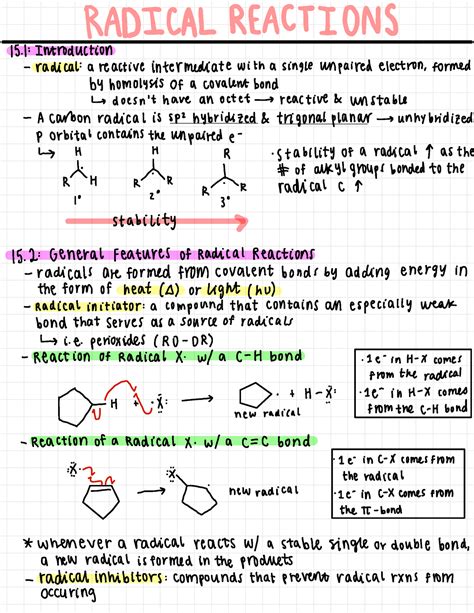 RADICAL REACTIONS
15.1: Introduction
- radical: a reactive intermediate with a single unpaired electron, formed
by homolysis of a covalent bond
↳ doesn't have an octet → reactive & unstable
- A carbon radical is sp² hybridized & trigonal planar → unhybridized
p orbital contains the unpaired e⁻
H
R H
1°
H
R R
2°
R
R R
3°
· stability of a radical ↑ as the
# of alkyl groups bonded to the
radical C ↑
stability
15.2: General Features of Radical Reactions
- radicals are formed from covalent bonds by adding energy in
the form of heat (Δ) or light (hν)
- Radical initiator: a compound that contains an especially weak
bond that serves as a source of radicals
↳ i.e. perioxides (RO-OR)
- Reaction of Radical X· w/ a C-H bond
· 1e⁻ in H-X comes
from the radical
· 1e⁻ in H-X comes
from the C-H bond
H + ·X: → · + H-X:
new radical
- Reaction of a Radical X· w/ a C=C bond
· 1e⁻ in C-X comes from
the radical
· 1e⁻ in C-X comes from
the π-bond
:X· → :X:
new radical
* whenever a radical reacts w/ a stable single or double bond,
a new radical is formed in the products
- radical inhibitors: compounds that prevent radical rxns from
occuring